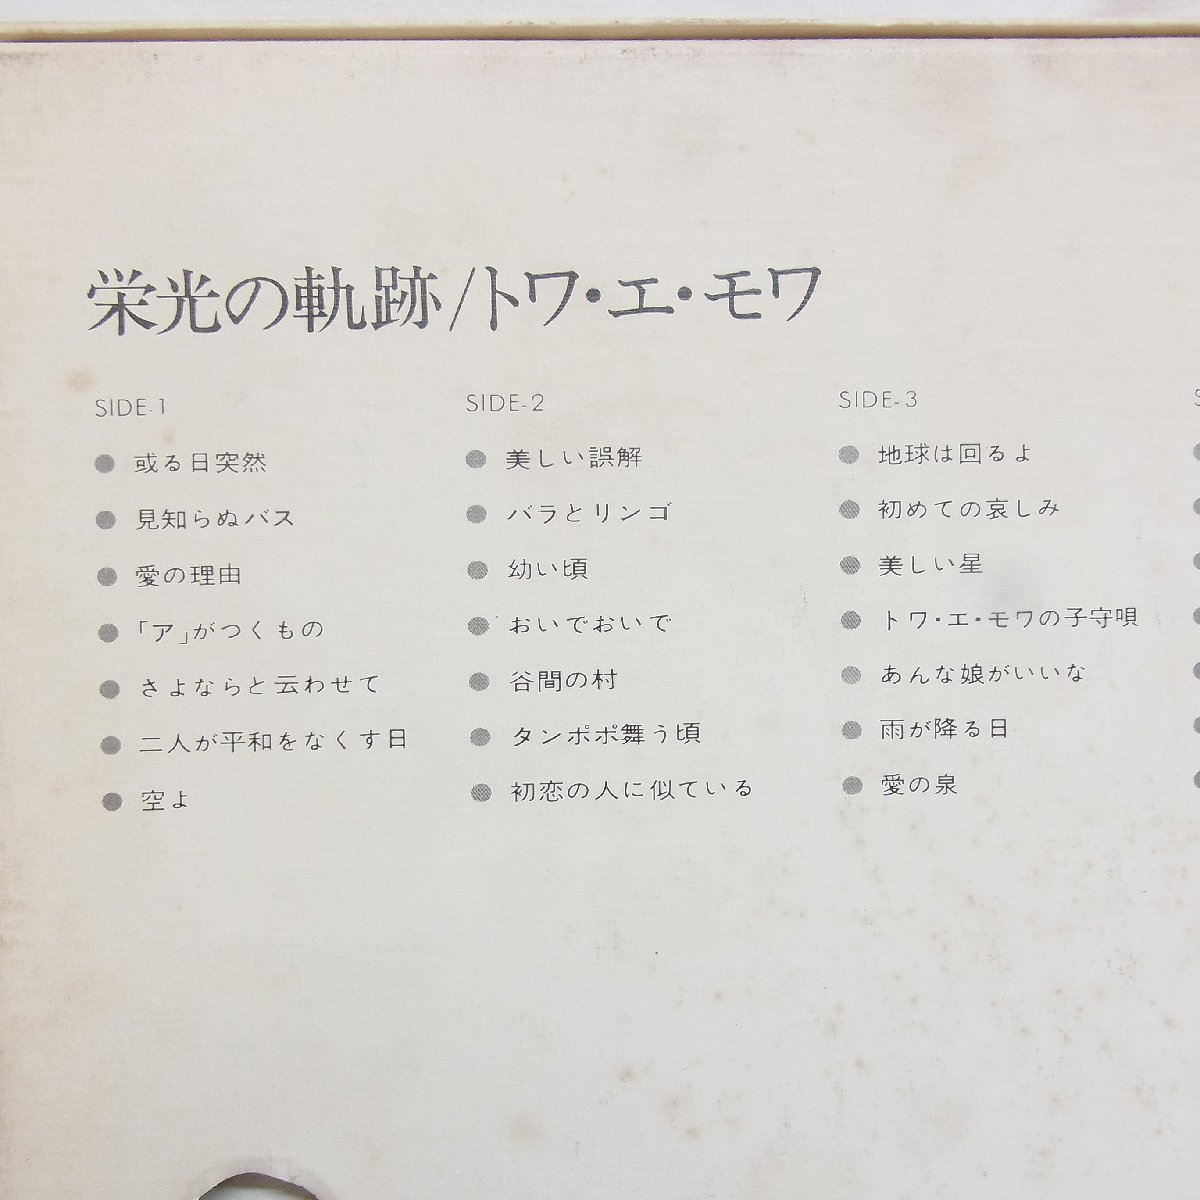 栄光の軌跡/トワ・エ・モワ
SIDE-1
● 或る日突然
● 見知らぬバス
● 愛の理由
● 「ア」がつくもの
● さよならと云わせて
● 二人が平和をなくす日
● 空よ
SIDE-2
● 美しい誤解
● バラとリンゴ
● 幼い頃
● おいでおいで
● 谷間の村
● タンポポ舞う頃
● 初恋の人に似ている
SIDE-3
● 地球は回るよ
● 初めての哀しみ
● 美しい星
● トワ・エ・モワの子守唄
● あんな娘がいいな
● 雨が降る日
● 愛の泉